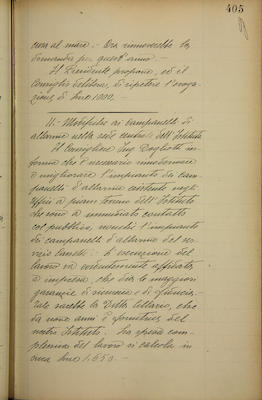 405
cura al mare. - Ora rinnoverebbe la
domanda per quest'anno. -
Il Presidente propone, ed il
Consiglio delibera, di ripetere l'eroga-
zione di lire 1000. -
11. - Modifiche ai campanelli di
allarme nella sede centrale dell'Istituto
Il Consigliere Ing. Dogliotti in-
forma che è necessario rimodernare
e migliorare l'impianto dei cam-
panelli d'allarme esistente negli
uffici a piano terreno dell'Istituto
che sono a immediato contatto
col pubblico, nonché l'impianto
di campanelli d'allarme del ser-
vizio
L'esecuzione del
lavoro va evidentemente affidata
a impresa, che dia le maggiori
garanzie di
e di fiducia. -
Tale sarebbe la Ditta
che
da vari anni è fornitrice del
nostro Istituto. La spesa com-
plessiva del lavoro si calcola in
circa lire 1.650. -